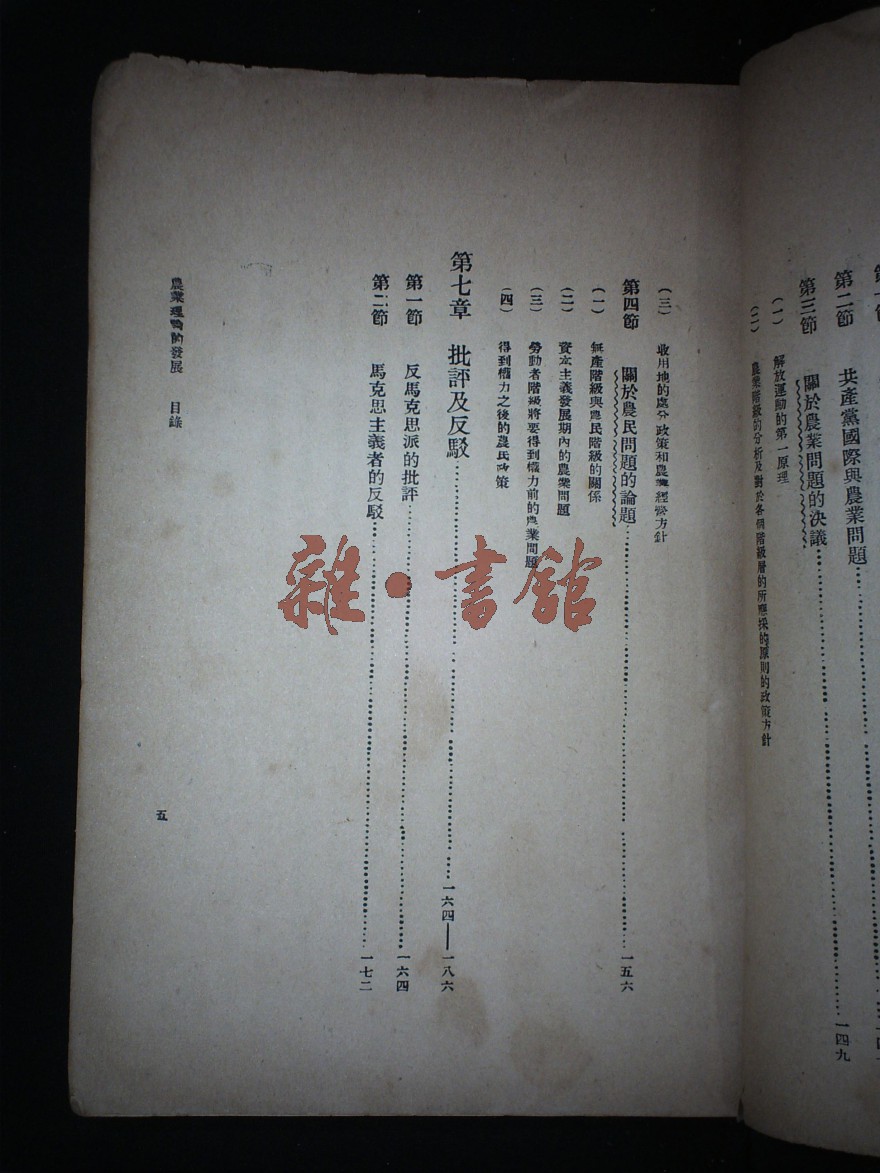 第二節 共產黨國際與農業問題
第三節 關於農業問題的決議 一四九
(一) 解放運動的第一原理
(二) 農業階級的分析及對於各個階級層的所應採的原則的政策方針
(三) 收用地的處分政策和農業經營方針
第四節 關於農民問題的論題 一五六
(一) 無產階級與農民階級的關係
(二) 資本主義發展期內的農業問題
(三) 勞動者階級將要得到權力前的農業問題
(四) 得到權力之後的農民政策
第七章 批評及反駁 一六四——一八六
第一節 反馬克思派的批評 一六四
第二節 馬克思主義者的反駁 一七二
農業理論的發展 目錄
五
雜·書館